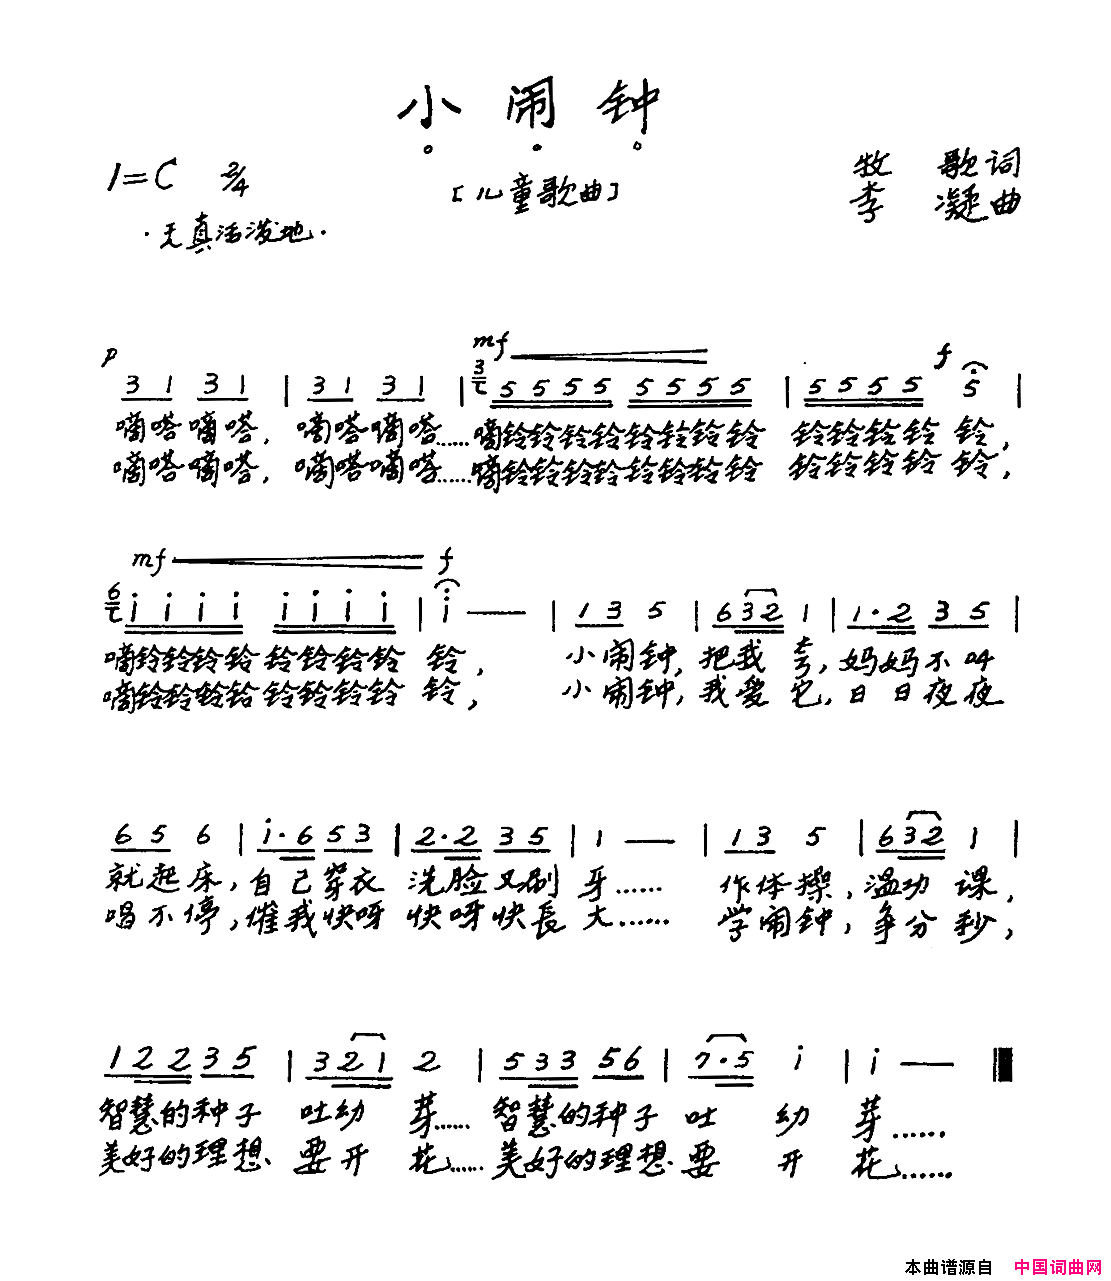 小闹钟
1=C 2/4
[儿童歌曲]
牧 歌词
李 凝曲
·天真活泼地·
p mf f
3 1 3 1 | 3 1 3 1 | 5 5 5 5 5 5 5 5 | 5 5 5 5 5 |
嘀嗒嘀嗒, 嘀嗒嘀嗒……嘀铃铃铃铃铃铃铃铃 铃铃铃铃 铃,
嘀嗒嘀嗒, 嘀嗒嘀嗒……嘀铃铃铃铃铃铃铃铃 铃铃铃铃 铃,
mf f
i i i i i i i i | i — | 1 3 5 | 6 3 2 1 | 1·2 3 5 |
嘀铃铃铃铃 铃铃铃铃 铃, 小闹钟,把我夸,妈妈不叫
嘀铃铃铃铃 铃铃铃铃 铃, 小闹钟,我爱它,日日夜夜
6 5 6 | i·6 5 3 | 2·2 3 5 | 1 — | 1 3 5 | 6 3 2 1 |
就起床,自己穿衣 洗脸又刷 牙…… 作体操,温功课,
唱不停,催我快呀 快呀快長 大…… 学闹钟,争分秒,
1 2 2 3 5 | 3 2 1 2 | 5 3 3 5 6 | 7·5 i | i —
智慧的种子 吐幼 芽……智慧的种子 吐 幼 芽……
美好的理想、要开 花、……美好的理想·要 开 花、……
本曲谱源自 中国词曲网